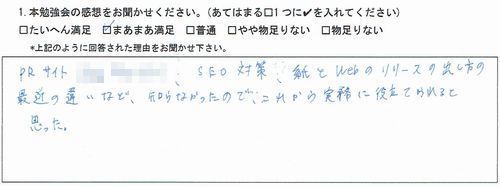 1. 本勉強会の感想をお聞かせください。(あてはまる□1つに✔を入れてください)
□たいへん満足 ☑まあまあ満足 □普通 □やや物足りない □物足りない
*上記のように回答された理由をお聞かせ下さい。
PRサイト 、SEO対策、紙とWebのリリースの出し方の
最近の違いなど、知らなかったので、これから実務に役立てられると
思った。